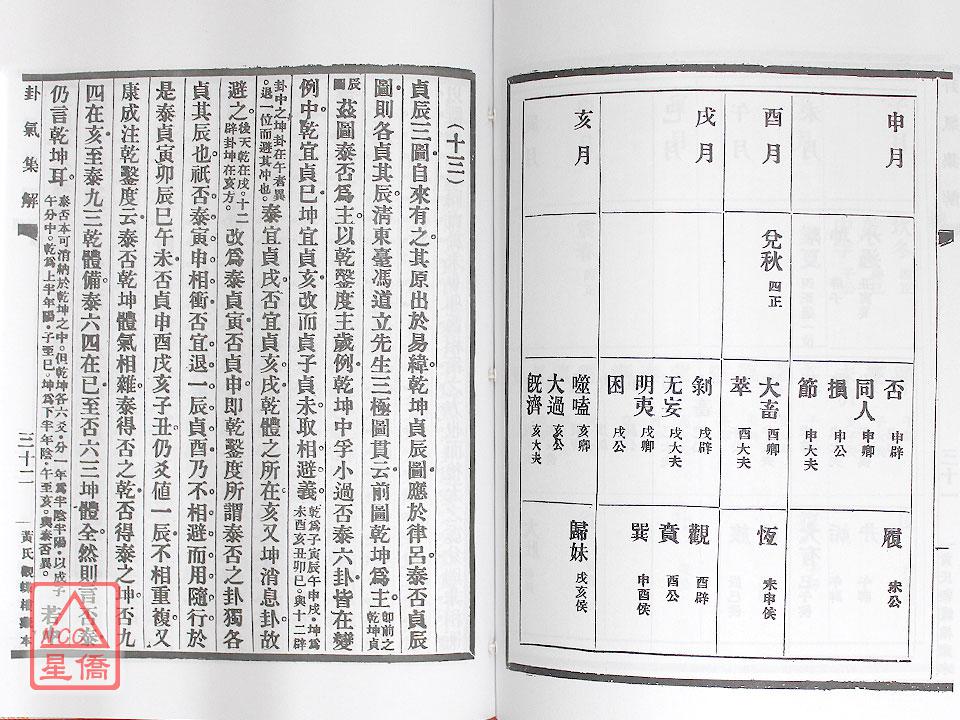 申月
否 申辟
同人 申卿
損 申公
節 申大夫
履 未公
酉月
兌秋 四正
大畜 酉卿
萃 酉大夫
恆 未申侯
戌月
剝 戌辟
无妄 戌大夫
明夷 戌卿
困 戌公
觀 酉辟
賁 酉公
巽 申酉侯
亥月
噬嗑 亥卿
大過 亥公
既濟 亥大夫
歸妹 戌亥侯
(十三)
貞辰三圖自來有之其原出於易緯乾坤貞辰圖應於律呂泰否貞辰
圖則各貞其辰清東臺馮道立先生三極圖貫云前圖乾坤為主即前之乾坤貞
辰圖茲圖泰否為主以乾鑿度主歲例乾坤中孚小過否泰六卦皆在變
例中乾宜貞巳坤宜貞亥改而貞子貞未取相避義乾為子寅辰午申戌坤為未酉亥丑卯巳與十二辟
卦中之坤卦在午者異退一位而避其沖也泰宜貞戌否宜貞亥戌乾體之所在亥又坤消息卦故
避之後天乾在戌十二辟卦坤在亥方改為泰貞寅否貞申即乾鑿度所謂泰否之卦獨各
貞其辰也祇否泰寅申相衝否宜退一辰貞酉乃不相避而用隨行於
是泰貞寅卯辰巳午未否貞申酉戌亥子丑仍爻值一辰不相重複又
康成注乾鑿度云泰否乾坤體氣相雜泰得否之乾否得泰之坤否九
四在亥至泰九三乾體備泰六四在巳至否六三坤體全然則言否泰
仍言乾坤耳泰否本可消納於乾坤之中但乾坤各六爻分一年為半陰半陽以戌子午分中乾為上半年陽子至巳坤為下半年陰午至亥與泰否異若中
卦氣集解
三十二
黃氏觀蝶樓藏本
NCC
星僑